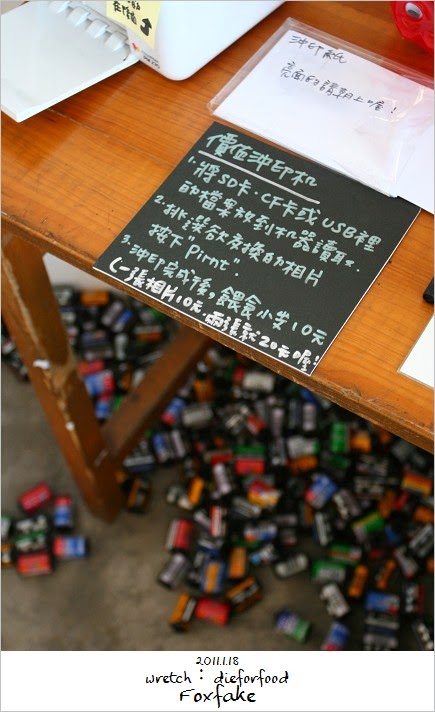 沖印紙
亮面的請朝上喔!
價值沖印机
1.將SD卡.CF卡或USB裡
的檔案放到机器讀取.
2.挑選欲交換的相片
按下"Pirnt".
3.沖印完成後,餵食小安10元
(一張相片10元.兩張就20元喔!)
2011.1.18
wretch：dieforfood
Foxfake